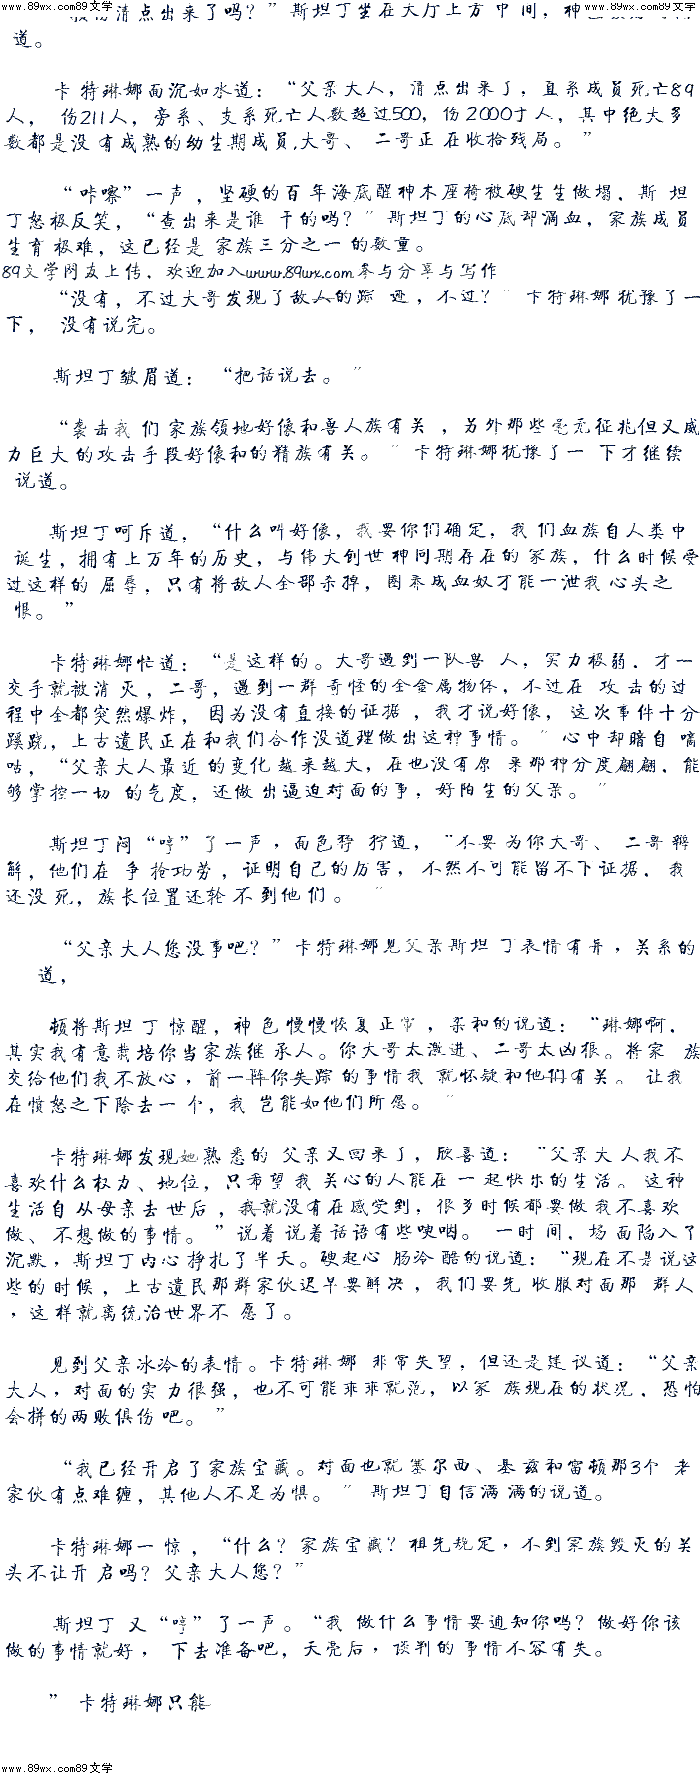 www.89wx.com89文学 www.89wx.com89文学
清点出来了吗？”斯坦丁坐在大厅上方中间，神
道。
卡特琳娜面沉如水道：“父亲大人，清点出来了，直系成员死亡89
人，伤211人，旁系、支系死亡人数超过500，伤2000于人，其中绝大多
数都是没有成熟的幼生期成员，大哥、二哥正在收拾残局。”
“咔嚓”一声，坚硬的百年海底醒神木座椅被硬生生做塌，斯坦
丁怒极反笑，“查出来是谁干的吗？”斯坦丁的心底却滴血，家族成员
生育极难，这已经是家族三分之一的数量。
89文学网友上传，欢迎加入www.89wx.com参与分享与写作
“没有，不过大哥发现了敌人的踪迹，不过？”卡特琳娜犹豫了一
下，没有说完。
斯坦丁皱眉道：“把话说去。”
“袭击我们家族领地好像和兽人族有关，另外那些毫无征兆但又威
力巨大的攻击手段好像和的精族有关。”卡特琳娜犹豫了一下才继续
说道。
斯坦丁呵斥道，“什么叫好像，我要你们确定，我们血族自人类中
诞生，拥有上万年的历史，与伟大创世神同期存在的家族，什么时候受
过这样的屈辱，只有将敌人全部杀掉，圈养成血奴才能一泄我心头之
恨。”
卡特琳娜忙道：“是这样的。大哥遇到一队兽人，实力极弱，才一
交手就被消灭，二哥，遇到一群奇怪的全金属物体，不过在攻击的过
程中全都突然爆炸，因为没有直接的证据，我才说好像，这次事件十分
蹊跷，上古遗民正在和我们合作没道理做出这种事情。”心中却暗自嘀
咕，“父亲大人最近的变化越来越大，在也没有原来那种分度翩翩，能
够掌控一切的气度，还做出逼迫对面的事，好陌生的父亲。”
斯坦丁闷“哼”了一声，面色狰狞道，“不要为你大哥、二哥辨
解，他们在争抢功劳，证明自己的厉害，不然不可能留不下证据，我
还没死，族长位置还轮不到他们。”
“父亲大人您没事吧？”卡特琳娜见父亲斯坦丁表情有异，关系的
道，
顿将斯坦丁惊醒，神色慢慢恢复正常，柔和的说道：“琳娜啊，
其实我有意栽培你当家族继承人。你大哥太激进、二哥太凶狠。将家族
交给他们我不放心，前一阵你失踪的事情我就怀疑和他们有关。让我
在愤怒之下除去一个，我岂能如他们所愿。”
卡特琳娜发现她熟悉的父亲又回来了，欣喜道：“父亲大人我不
喜欢什么权力、地位，只希望我关心的人能在一起快乐的生活。这种
生活自从母亲去世后，我就没有在感受到，很多时候都要做我不喜欢
做、不想做的事情。”说着说着话语有些哽咽。一时间，场面陷入了
沉默，斯坦丁内心挣扎了半天。硬起心肠冷酷的说道：“现在不是说这
些的时候，上古遗民那群家伙迟早要解决，我们要先收服对面那群人
，这样就离统治世界不愿了。
见到父亲冰冷的表情。卡特琳娜非常失望，但还是建议道：“父亲
大人，对面的实力很强，也不可能乖乖就范，以家族现在的状况，恐怕
会拼的两败俱伤吧。”
“我已经开启了家族宝藏。对面也就塞尔西、基兹和富顿那3个老
家伙有点难缠，其他人不足为惧。”斯坦丁自信满满的说道。
卡特琳娜一惊，“什么？家族宝藏？祖先规定，不到家族毁灭的关
头不让开启吗？父亲大人您？”
斯坦丁又“哼”了一声。“我做什么事情要通知你吗？做好你该
做的事情就好，下去准备吧，天亮后，谈判的事情不容有失。
”卡特琳娜只能
www.89wx.com89文学